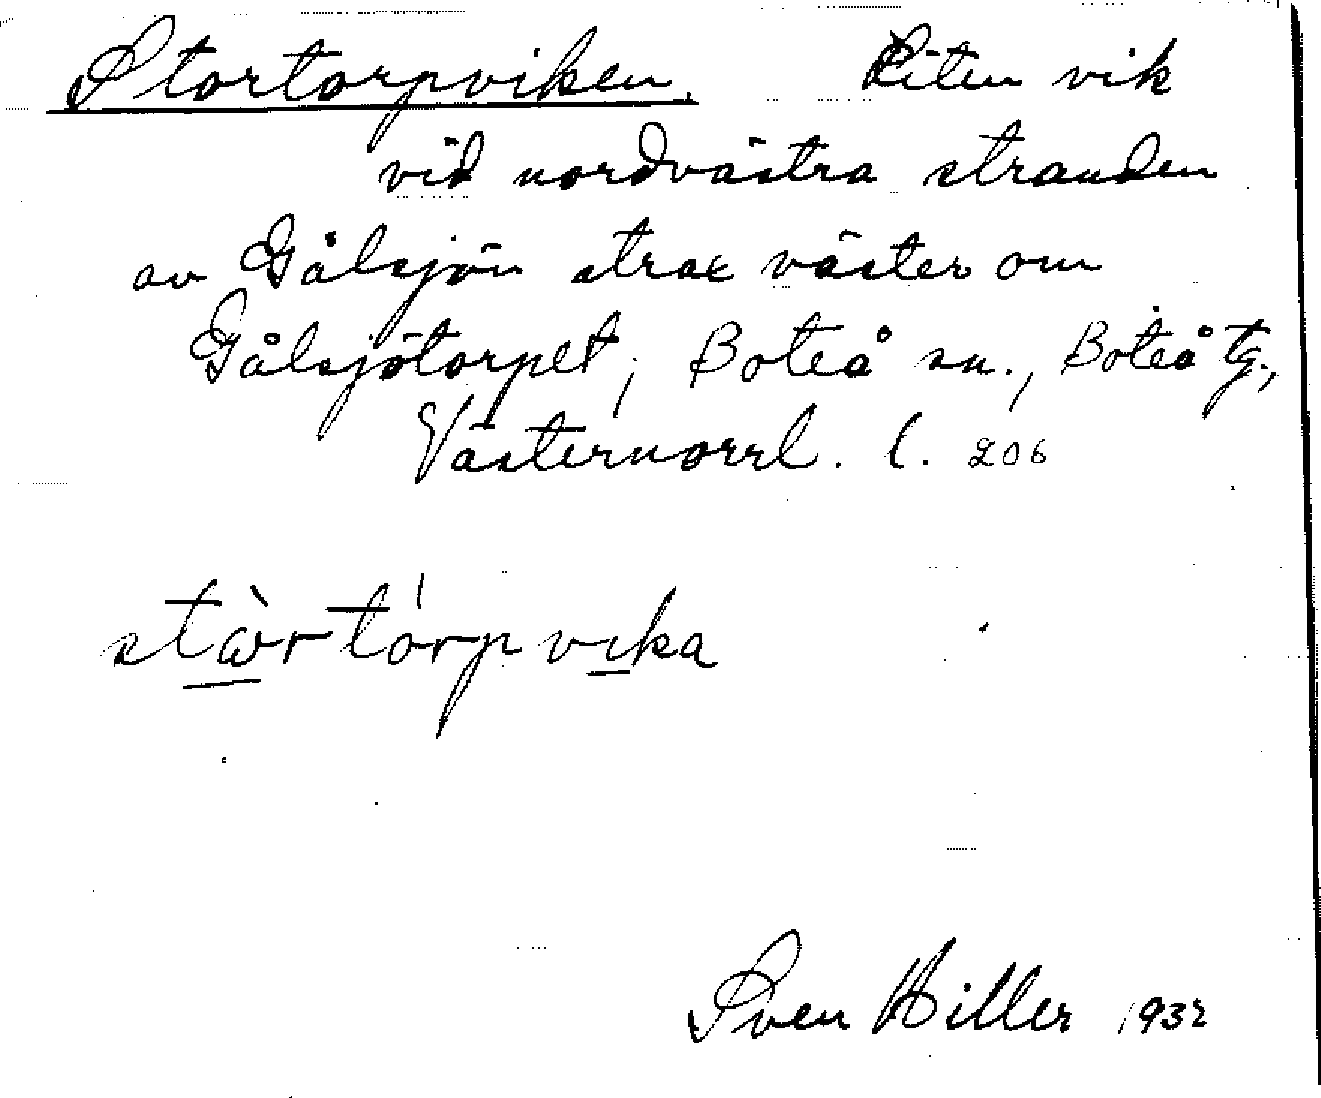 Stortorpviken. Liten vik
vid nordvästra stranden
av Gålsjön strax väster om
Gålsjötorpet, Boteå sn., Boteå tg.,
Västernorrl. l. 206
stὼrtórpvika
Sven Hiller 1932